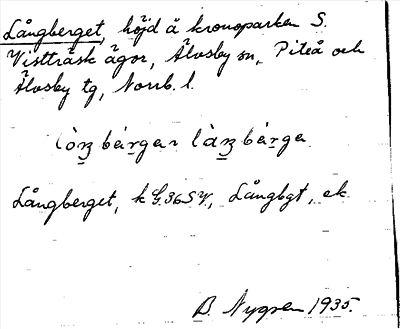 Långberget, höjd å kronoparken S.
Vistträsk ägor, Älvsby sn, Piteå och
Älvsby tg, Norrb. l.
Långberget, k G.36SV., Långbgt, ek
B. Nygren 1935.